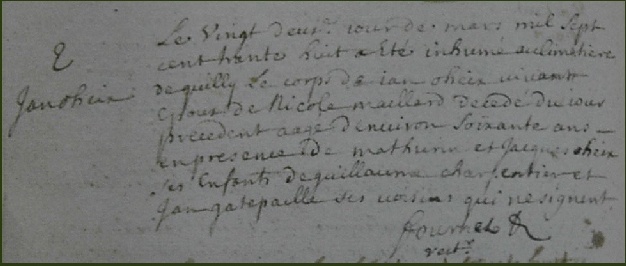 E
Jan oheix
Le vingt deux.e iour de mars mil sept
cent trante huit a Eté inhumé au cimetiere
de quilly Le corps de ian oheix vivant
Epoux de Nicole maillard decedé du iour
precedent aagé d'environ soixante ans
en presence de mathurin et Jacques oheix
ses Enfants de guillaume charpentier et
Jan gatepaille ses voisins qui ne signent
fournel R